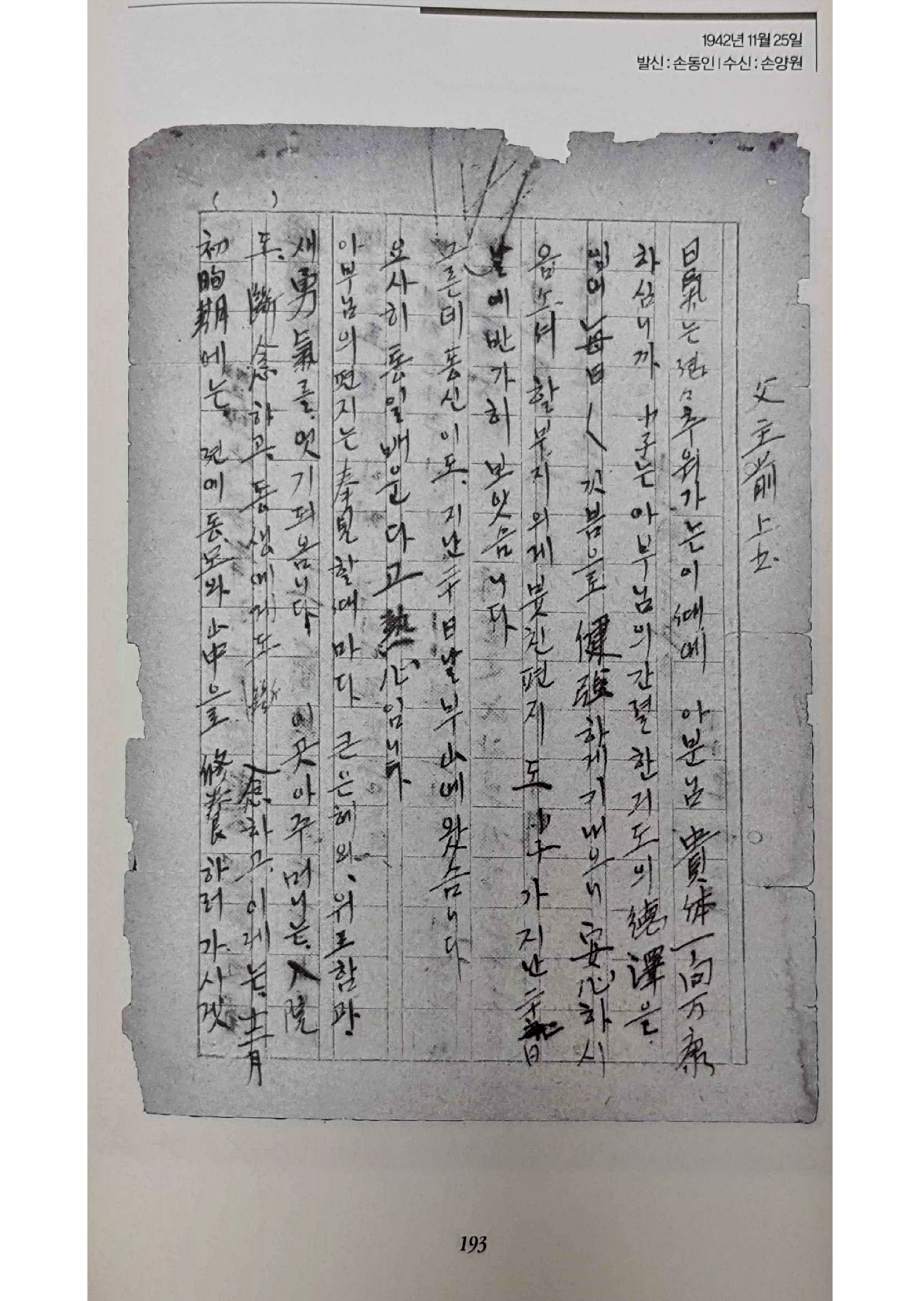 1942년 11월 25일
발신 : 손동인 | 수신 : 손양원
父主前上書
日氣는 추워가는이때에 아분님 貴体一向万康
하심니까 小子는아부님의간절한긔도의德澤을
님의每日〱깃븜으로健强하게기내오니安心하시
옵소셔 할부지의게붓친편지도 가지난 日
날에반가히보앗슴니다
그른데동신이도、지난二十日날부山에왓슴니다
요사히동일배운다고熱心임니다
아부님의편지는奉見할때마다큰은혜와、위로함과、
새勇氣를、엇기되옴니다 이곳아주머니는、入院
도、斷念하고、동생에긔도 念하고、이제는、十二月
初旬期에는、 동모와山中으로修養하러가、사겟
193